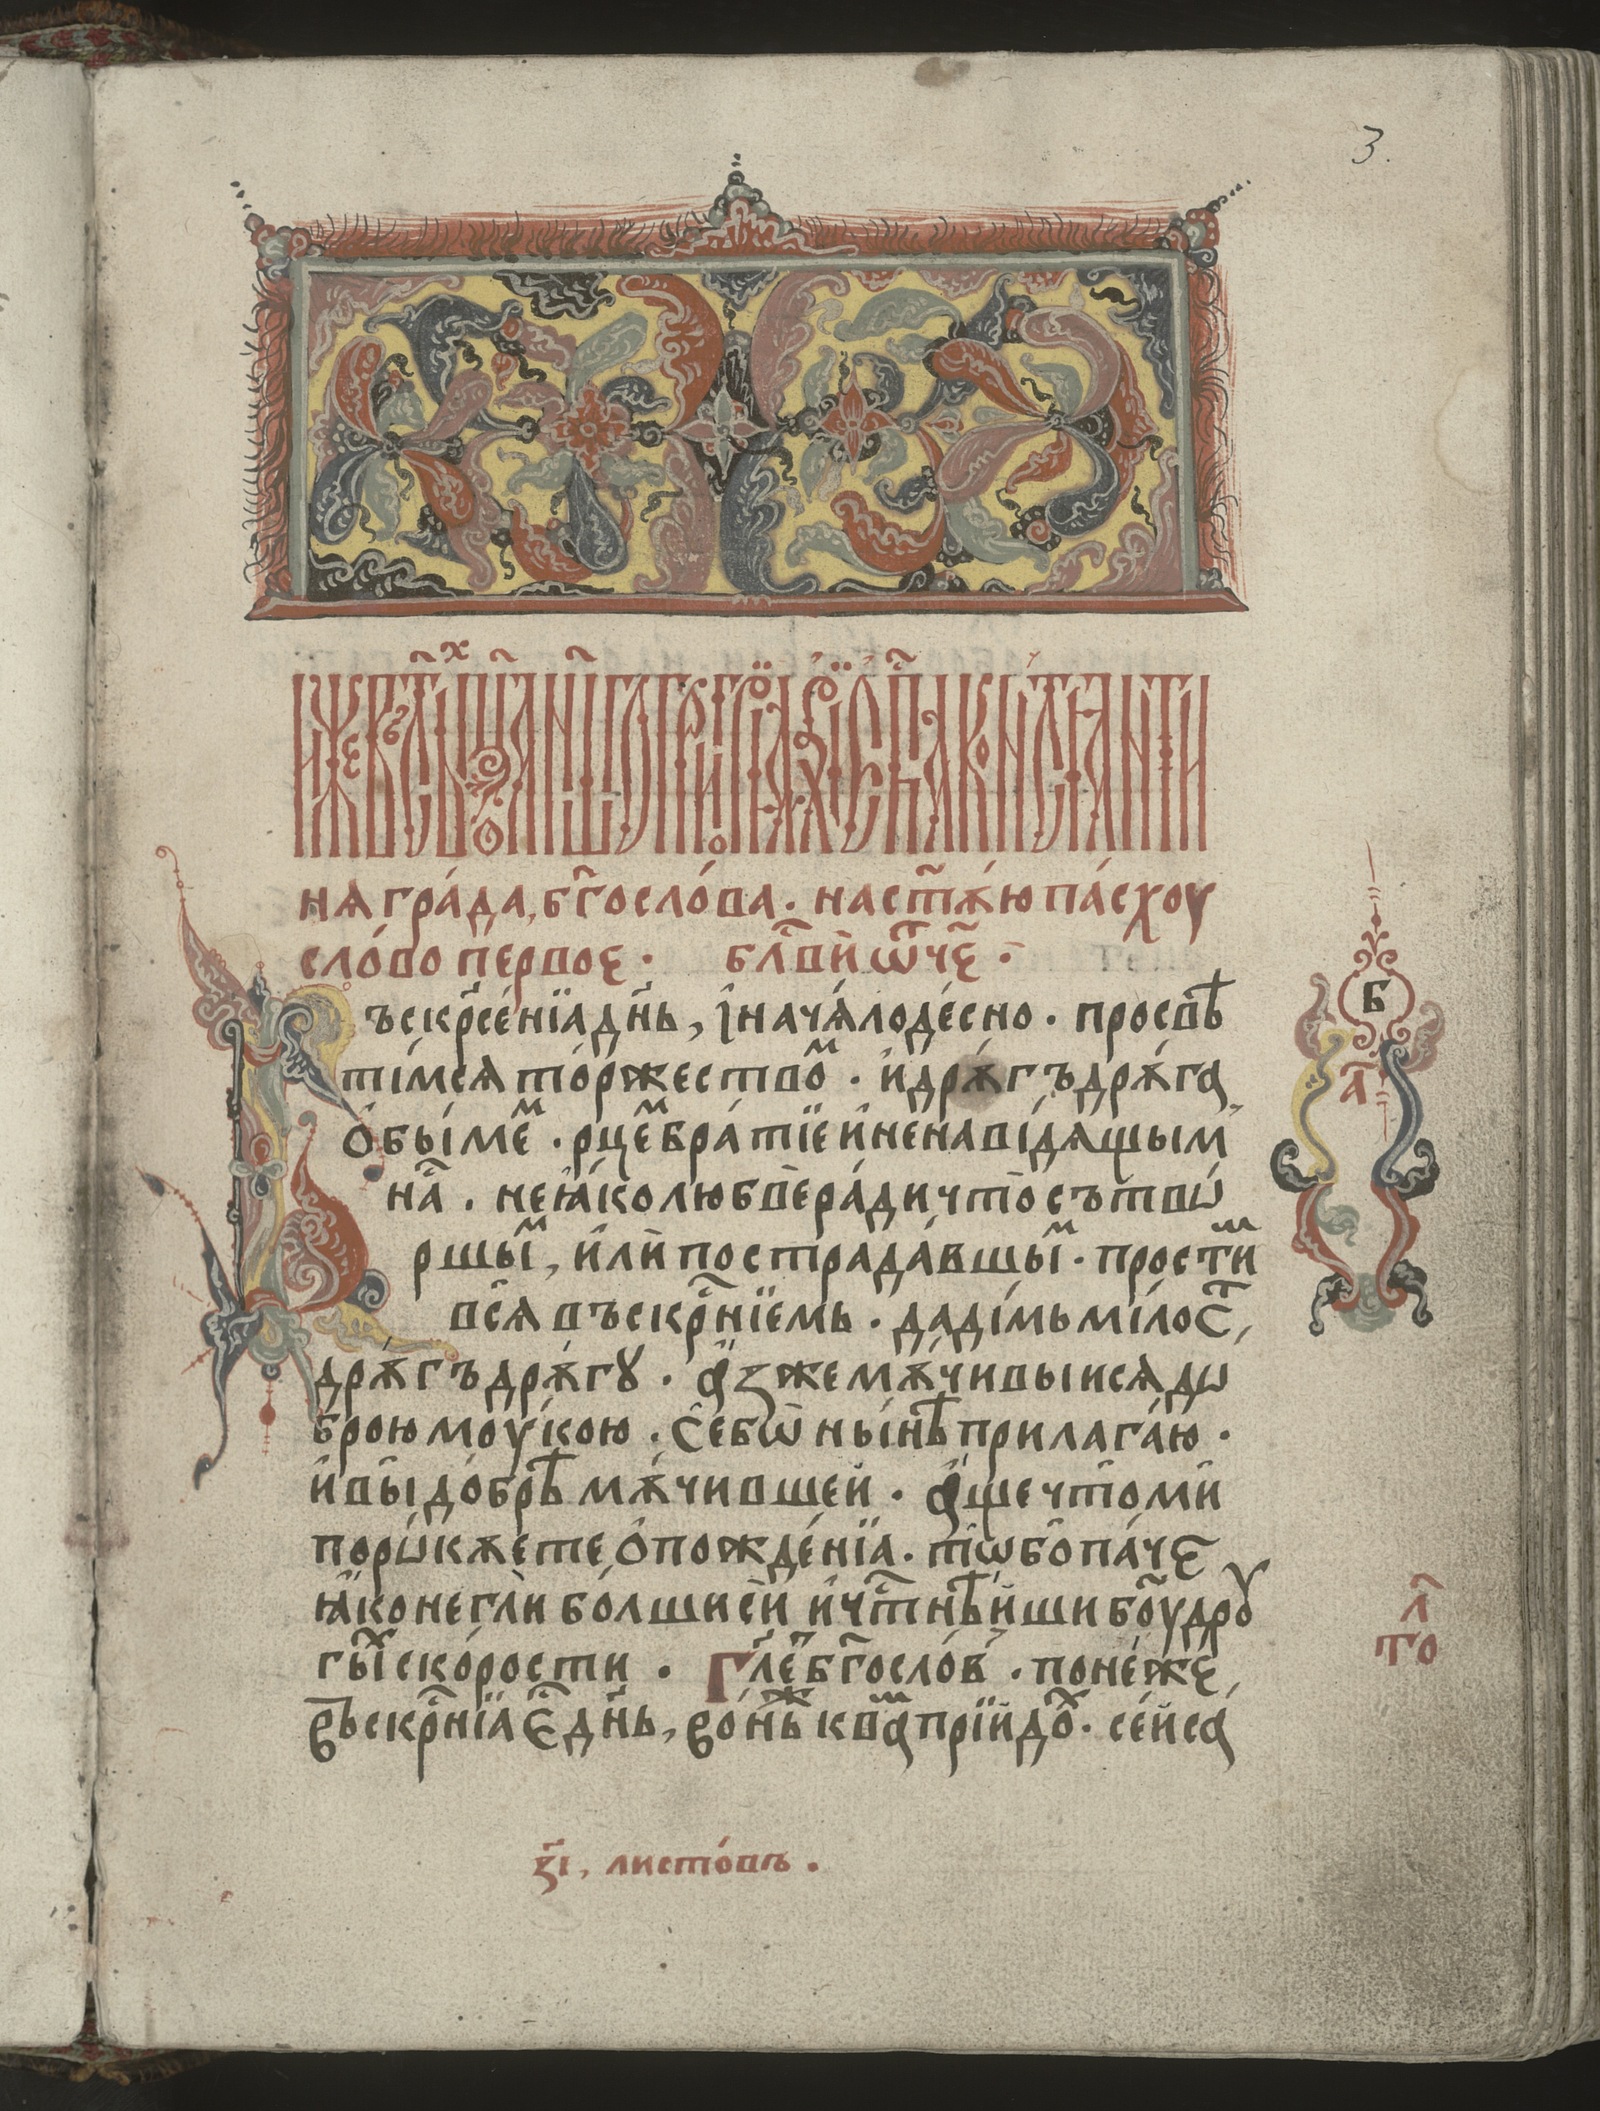 3.
иже въ ст҃ы́х ѡ҃ца на́шего григо́рїа а́рхїеп҃па ко́нстанти
ня гра́да, бг҃осло́ва. на ст҃ѫ́ю па́схоу
сло́во первое . бл҃ви́ ѿч҃е .
Въскрⷭ҇е́нїа дн҃ь, і҆ нача́ло де́сно . просвѣ
ті́мсѧ то́ржествоⷨ . и҆ дрѫ́гъ дрѫ́га
ѻ҆бы́меⷨ . рце́ⷨ бра́тїе и҆ ненаві́дѧщым
на́ . не ꙗ҆́ко любве ра́ди что̀ сътвѡ́
ршыⷨ, и҆лѝ пострада́вшыⷨ . прости́ⷨ
всѧ̀ въскрⷭ҇нїемь . дади́мь ми́лоⷭ҇т,
дрѫ́гъ дрѫ́гꙋ . а҆́з же мѫ́чивыисѧ дѡ
брою моу́кою . се́ бѡ ны́нѣ прилага́ю .
и҆ вы̀ до́брѣ мѫ́чившеи . а҆́ще что̀ мѝ
порѡ́кѫете ѻ҆ пожде́нїа . то̀ бо па́че
ꙗ҆́ко негли бо́лшиси́ и҆ чⷭ҇тнѣ́йши бо҃у дро
гы́ⷯ ско́рости . Гл҃е́ⷮ бг҃осло́в . поне́же
въскрⷭ҇нїа є҆́ⷭ дн҃ь, во́нⷤь к ва́ⷨ прїйдо́ⷯ . се́й са
Б
а҃
л҃
то
з҃і, листо́въ .